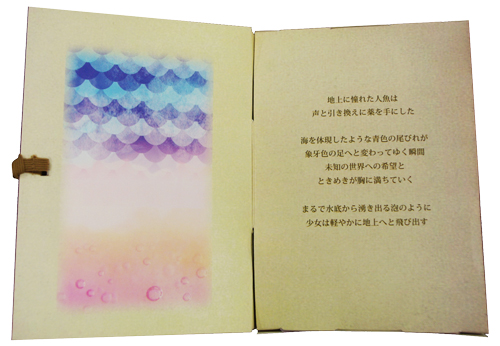 地上に憧れた人魚は
声と引き換えに薬を手にした
海を体現したような青色の尾びれが
象牙色の足へと変わってゆく瞬間
未知の世界への希望と
ときめきが胸に満ちていく
まるで水底から湧き出る泡のように
少女は軽やかに地上へと飛び出す